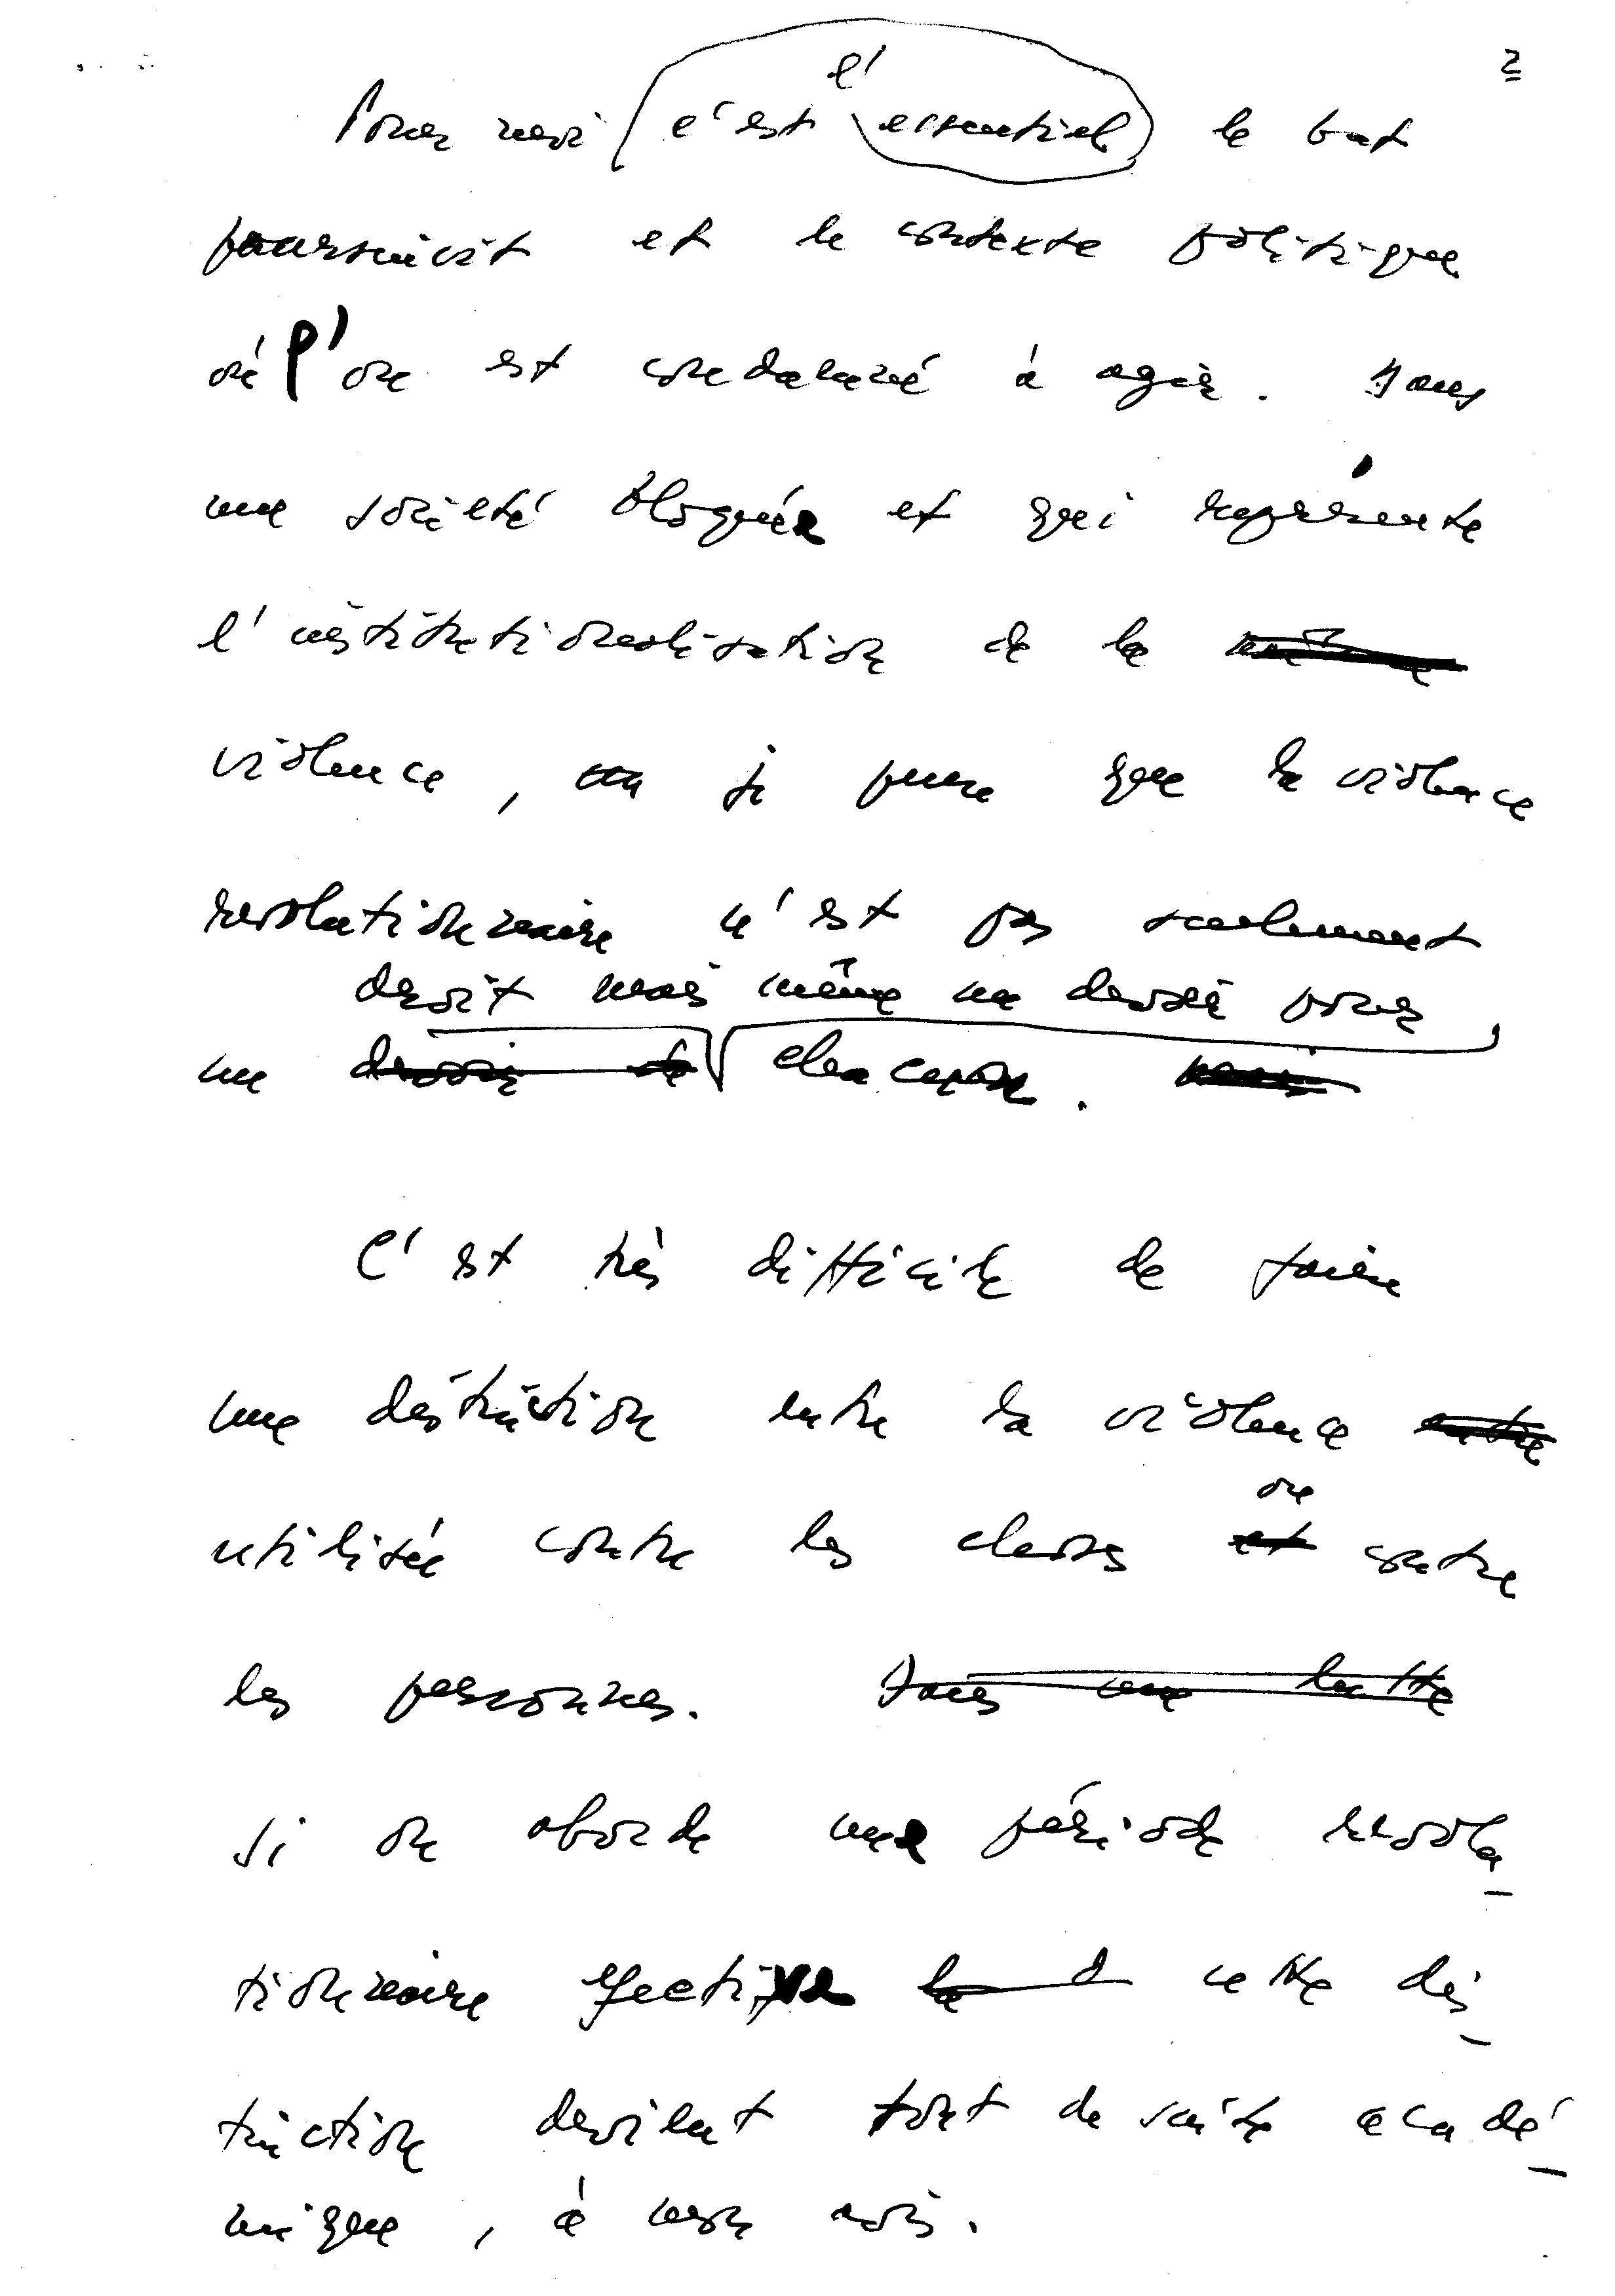 2
l'
Pour moi c'est essentiel le but
poursuivit et le contexte politique
où l'on est condamné à agir. Dans
une société bloquée et qui représente
l'institutionalisation de la
violence, je pense que la violence
revolutionnaire n'est pas seulement
droit mais même un devoir pour
un devoir de chacun. mais
C'est très difficile de faire
une distinction entre la violence entre
ou
utilisée contre les choses et contre
les personnes. Dans une lutte
Si on aborde une période revolu-
tionnaire efective la cette dis-
tinction devient tout de suite acadé-
mique, à mon avis.